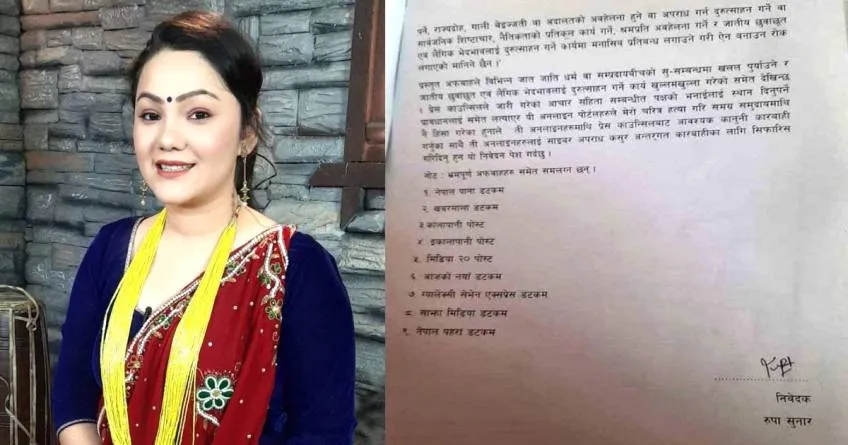 पर्ने, राज्यद्रोह, गाली बेइज्जती वा अदालतको अवहेलना हुने वा अपराध गर्न दुरुत्साहन गर्ने वा
सार्वजनिक शिष्टाचार, नैतिकताको प्रतिकूल कार्य गर्ने, श्रमप्रति अवहेलना गर्ने र जातीय छुवाछुत
एवं लैंगिक भेदभावलाई दुरुत्साहन गर्ने कार्यमा मनासिब प्रतिबन्ध लगाउने गरी ऐन बनाउन रोक
लगाएको मानिने छैन ।
प्रस्तुत अफवाहले विभिन्न जात जाति धर्म वा सम्प्रदायबीचको सु-सम्बन्धमा खलल पुर्याउने र
जातीय छुवाछुत एवं लैंगिक भेदभावलाई दुरुत्साहन गर्ने कार्य खुल्लमखुल्ला गरेको समेत देखिन्छ
। प्रेस काउन्सिलले जारी गरेको आचार संहिता सम्बन्धीत पक्षको भनाईलाई स्थान दिनुपर्ने
प्रावधानलाई समेत लत्याएर यी अनलाइन पोर्टलहरुले मेरो चरित्र हत्या गरि समग्र समुदायमाथि
नै हिंसा गरेका हुनाले ती अनलाइनहरूमाथि प्रेस काउन्सिलबाट आवश्यक कानूनी कारबाही
गर्नुका साथै ती अनलाइनहरुलाई साइबर अपराध कसुर अन्तरगत कारबाहीका लागि सिफारिस
गरिदिनु हुन यो निवेदन पेश गर्दछु ।
नोट : भ्रमपूर्ण अफवाहहरु समेत समलग्न छन् ।
१. नेपाल पाना डटकम
२. खबरमाला डटकम
३ कालापानी पोस्ट
४. इकालापानी पोस्ट
५. मिडिया २० पोस्ट
६. आजको नयाँ डटकम
७. ग्यालेक्सी सेभेन एक्सप्रेस डटकम
८. साझा मिडिया डटकम
९. नेपाल पहरा डटकम
निवेदक
रुपा सुनार